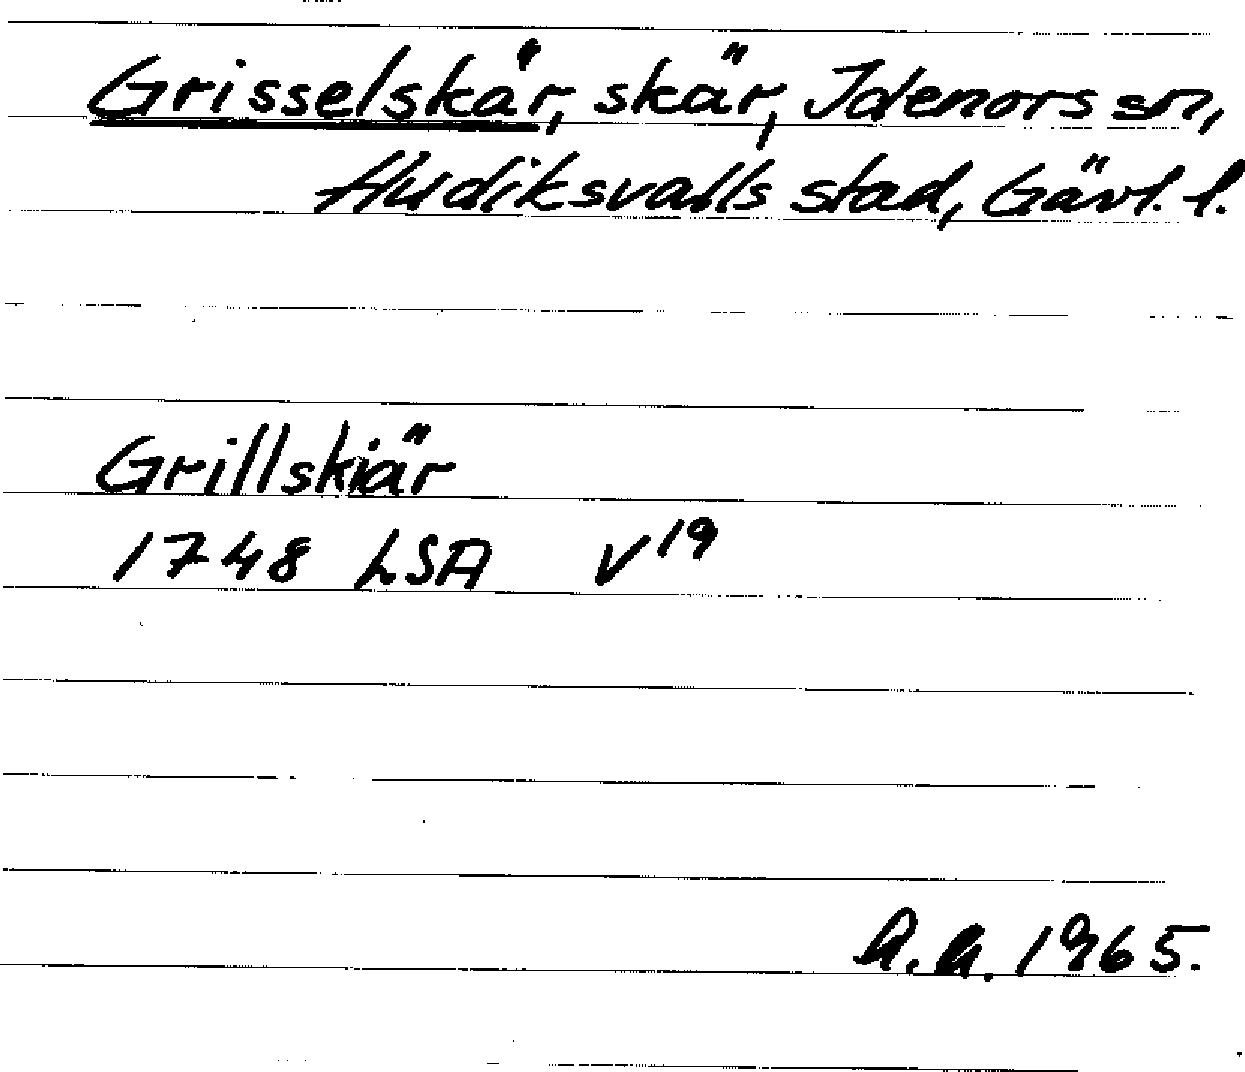 Grisselskär, skär, Idenors sn,
Hudiksvalls stad, Gävl. l.
Grillskiär
1748 LSA V19
A.A. 1965.